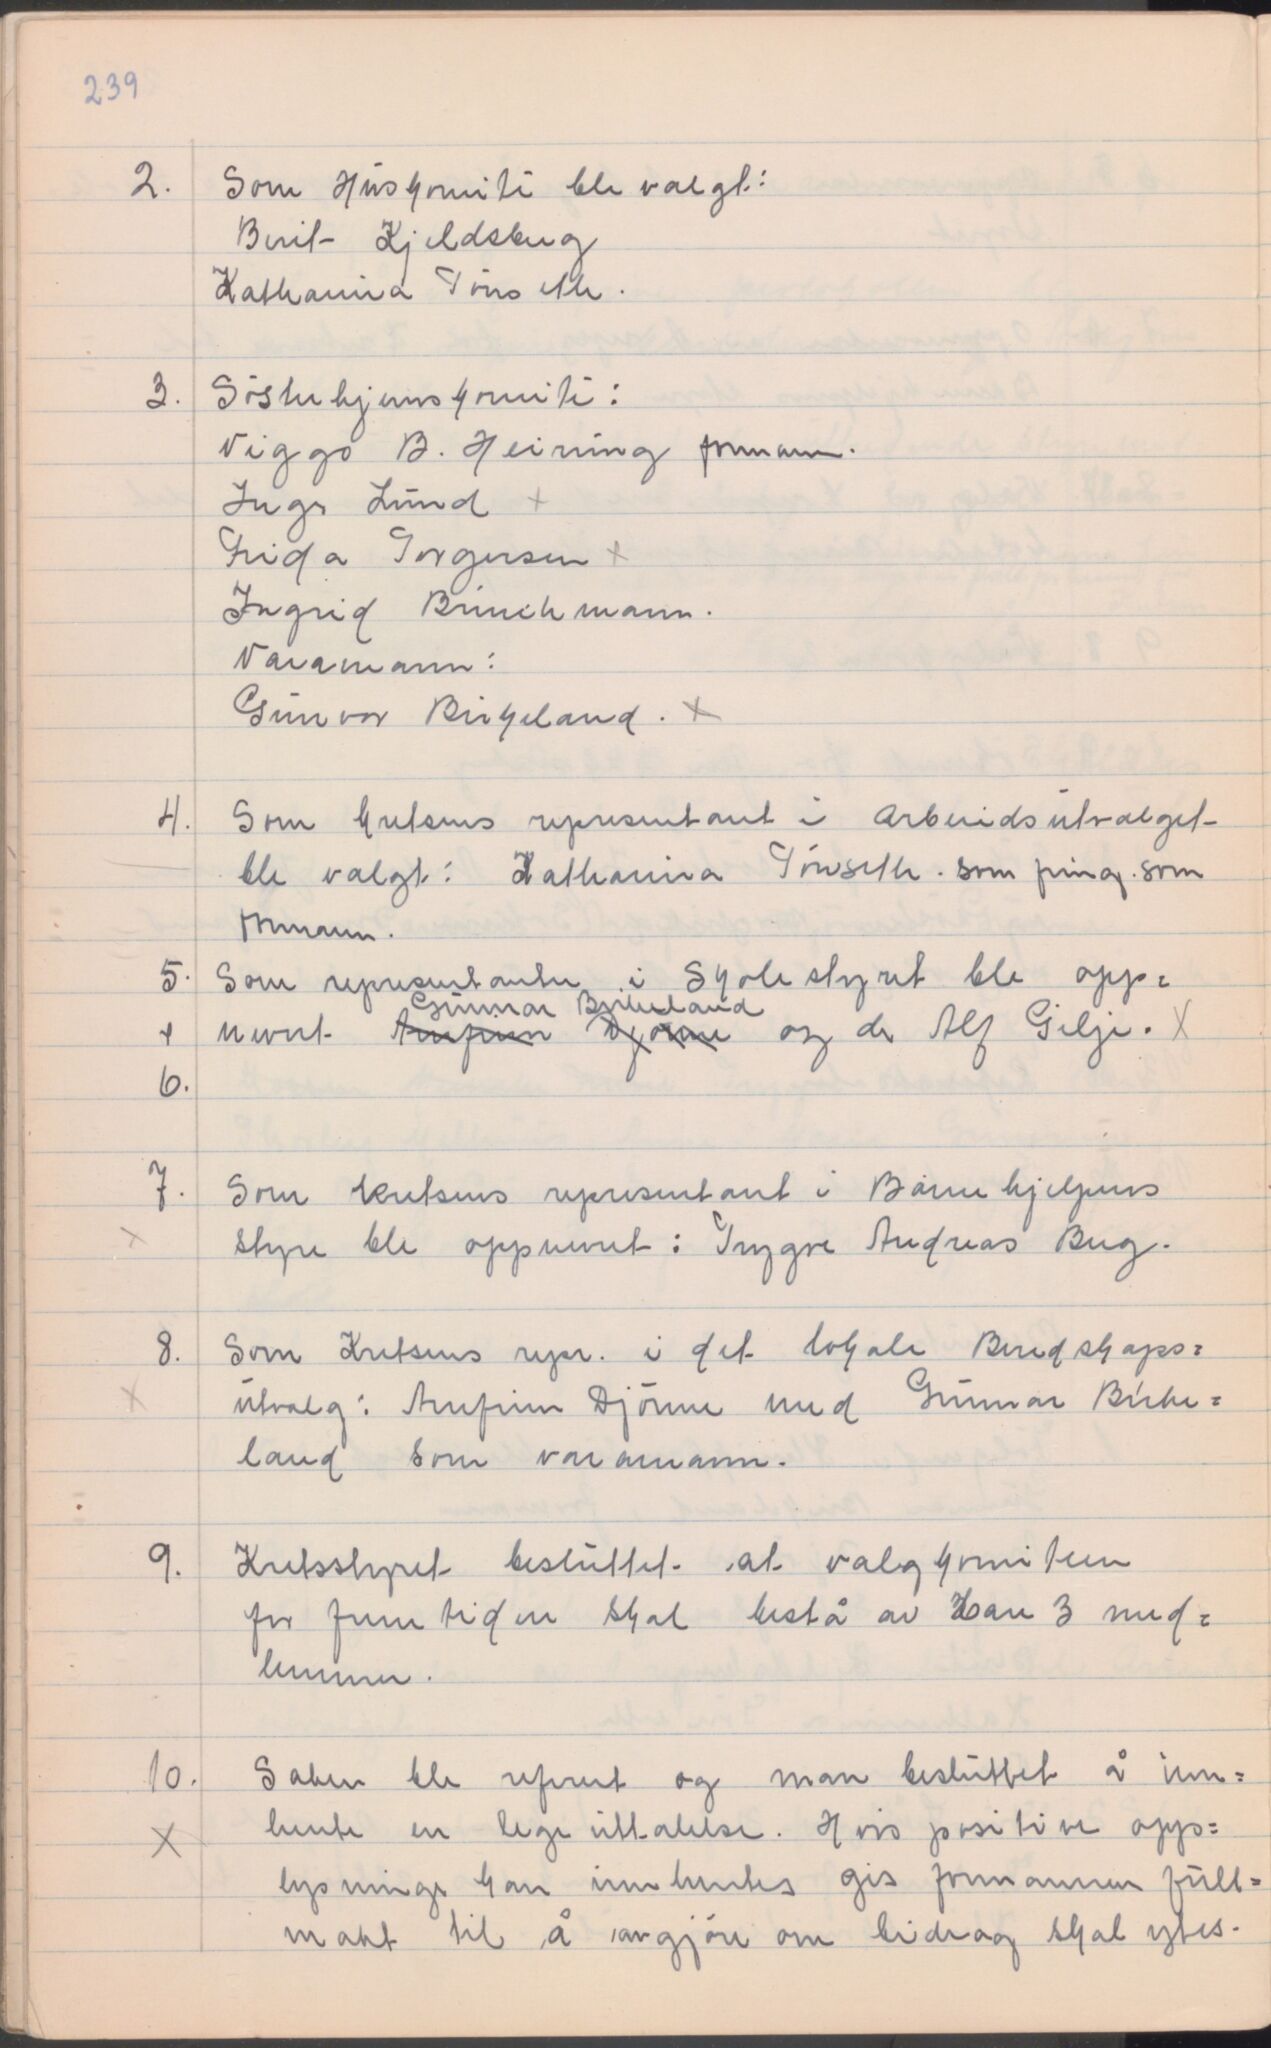 239
2. Som Huskomite ble valgt:
Berit Kjeldsberg
Katharina Tönseth.
3. Sösterhjemskomite:
Viggo B. Heining formann.
Inger Lund x
Frida Torgersen x
Ingrid Brinchmann.
Varamann:
Gunvor Birkeland. x
4. Som kretsens representant i Arbeidsutvalget
ble valgt: Katharina Tönseth. som som
formann.
5. Som representanter i Skolestyret ble opp=
Gunnar Birkeland
+ nevnt Arnfinn Djönne og dr Alf Gilje. X
6.
7. Som kretsens representant i Barnehjelpens
x styre ble oppnevnt: Trygve Andreas Berg.
8. Som Kretsens repr. i det lokale Beredskaps=
x utvalg: Arnfinn Djönne med Gunnar Birke=
land som varamann.
9. Kretsstyret besluttet at valgkomiteen
for fremtiden skal bestå av bare 3 med=
lemmer.
10. Saken ble referert og man besluttet å inn=
X hente en legeuttalelse. Hvis positive opp=
lysninger kan innhentes gis formannen full=
makt til å avgjöre om bidrag skal ytes.